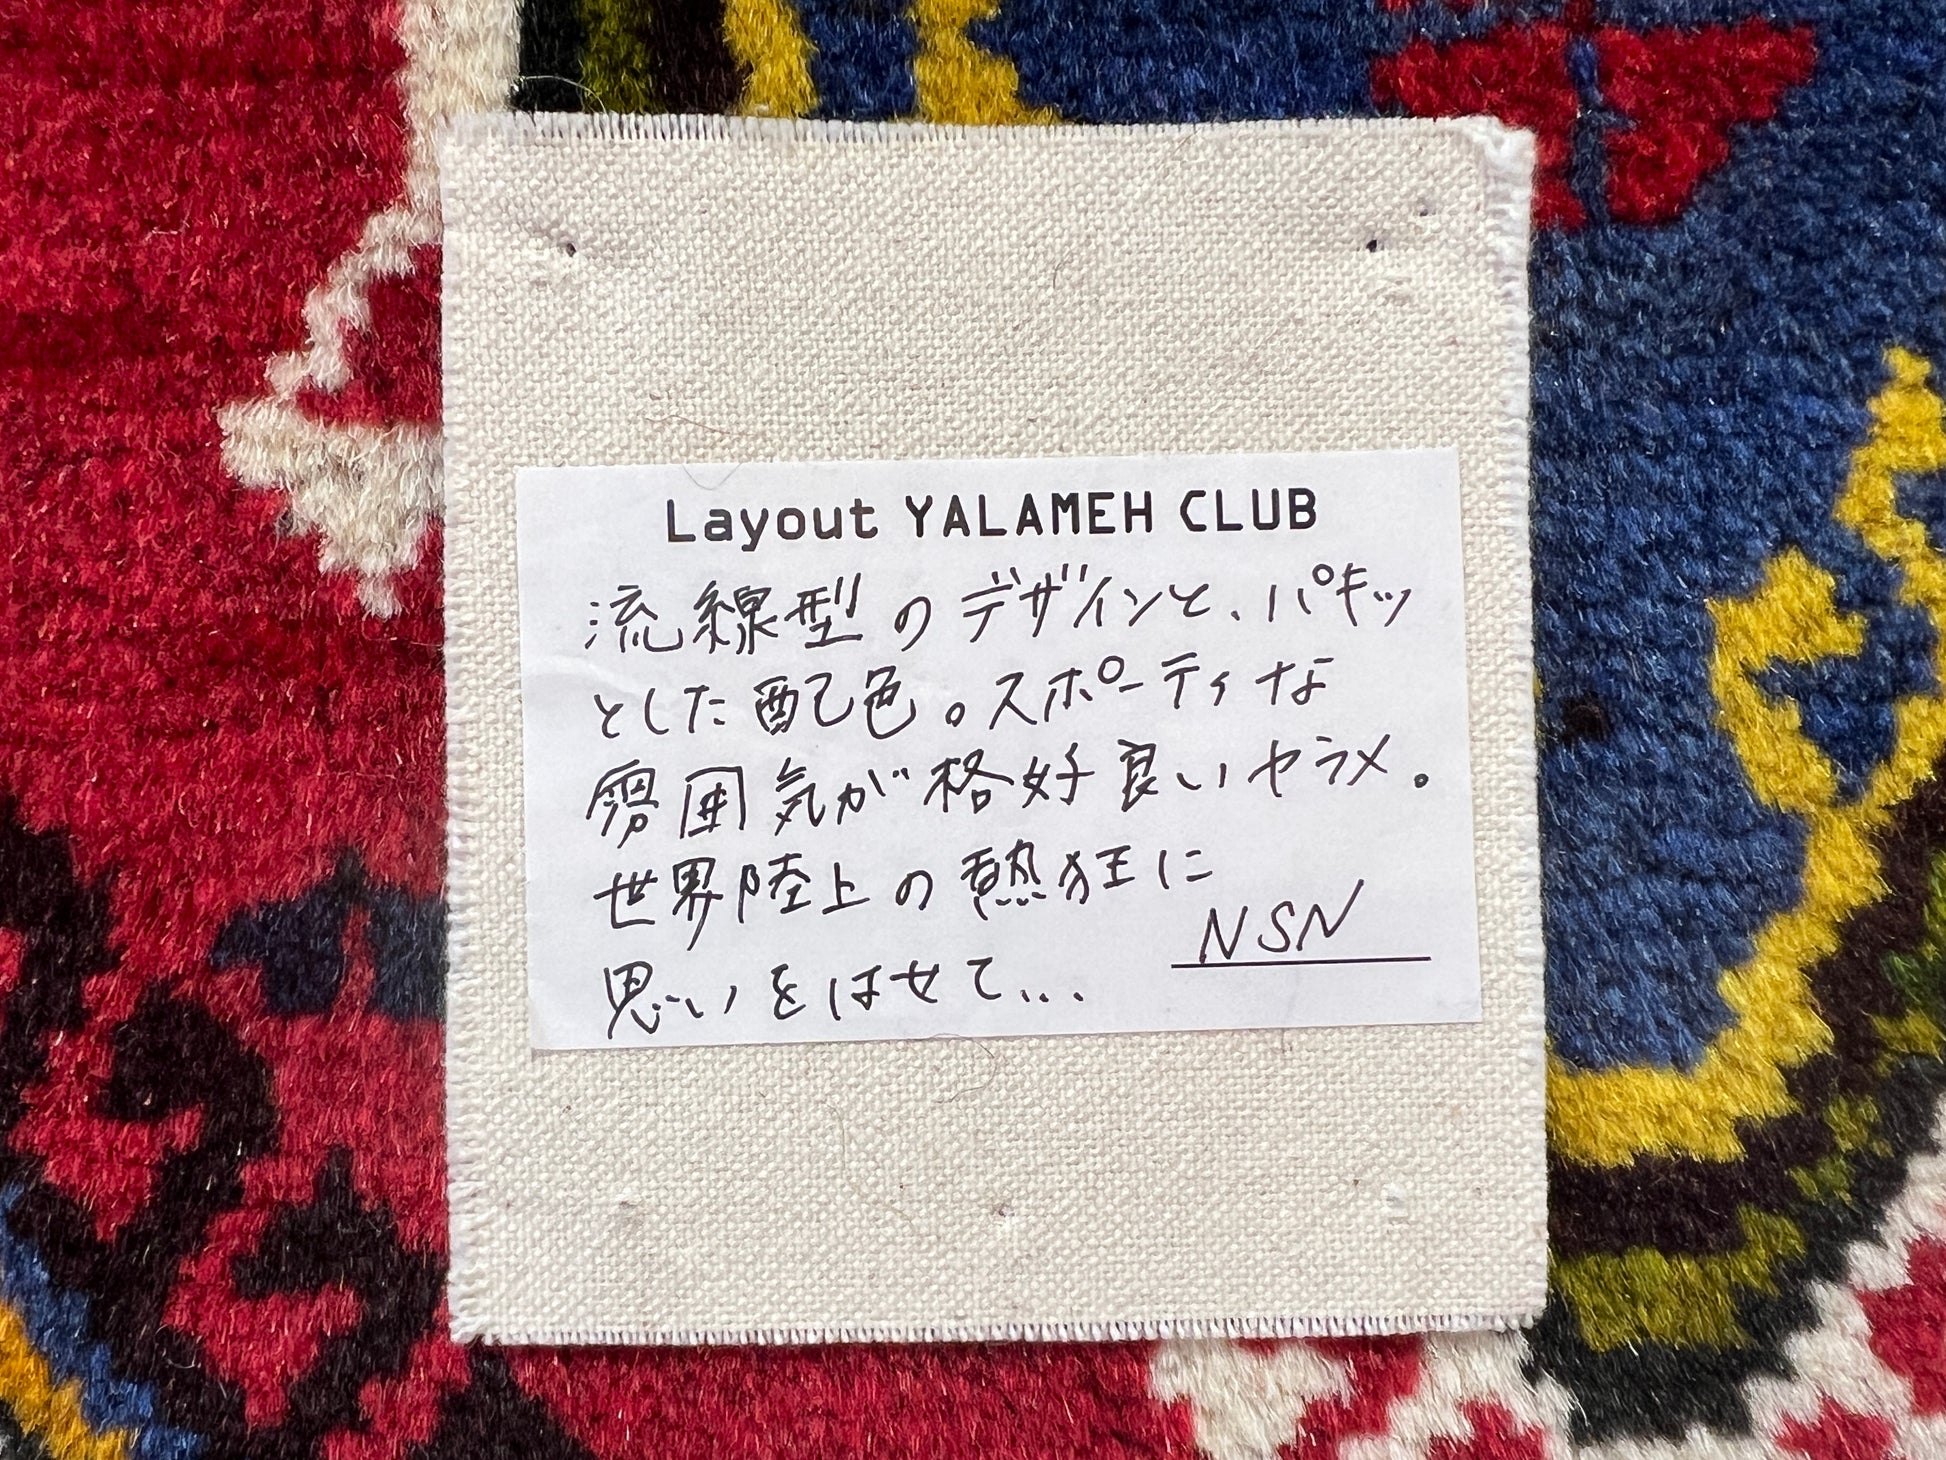 Layout YALAMEH CLUB
流線型のデザインと、パキッ
とした配色。スポーティな
雰囲気が格好良いヤラメ。
世界陸上の熱狂に
思いをはせて...
NSN